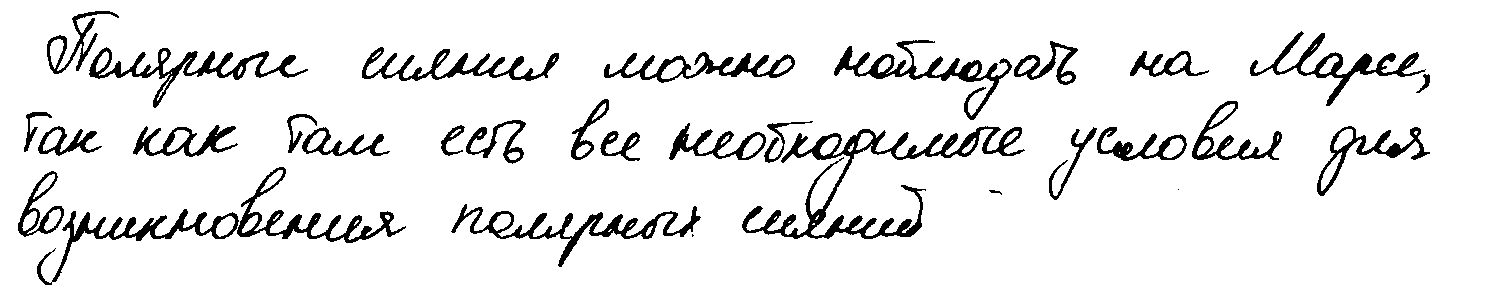 Полярные сияния можно наблюдать на Марсе,
так как там есть все необходимые условия для
возникновения полярных сияний